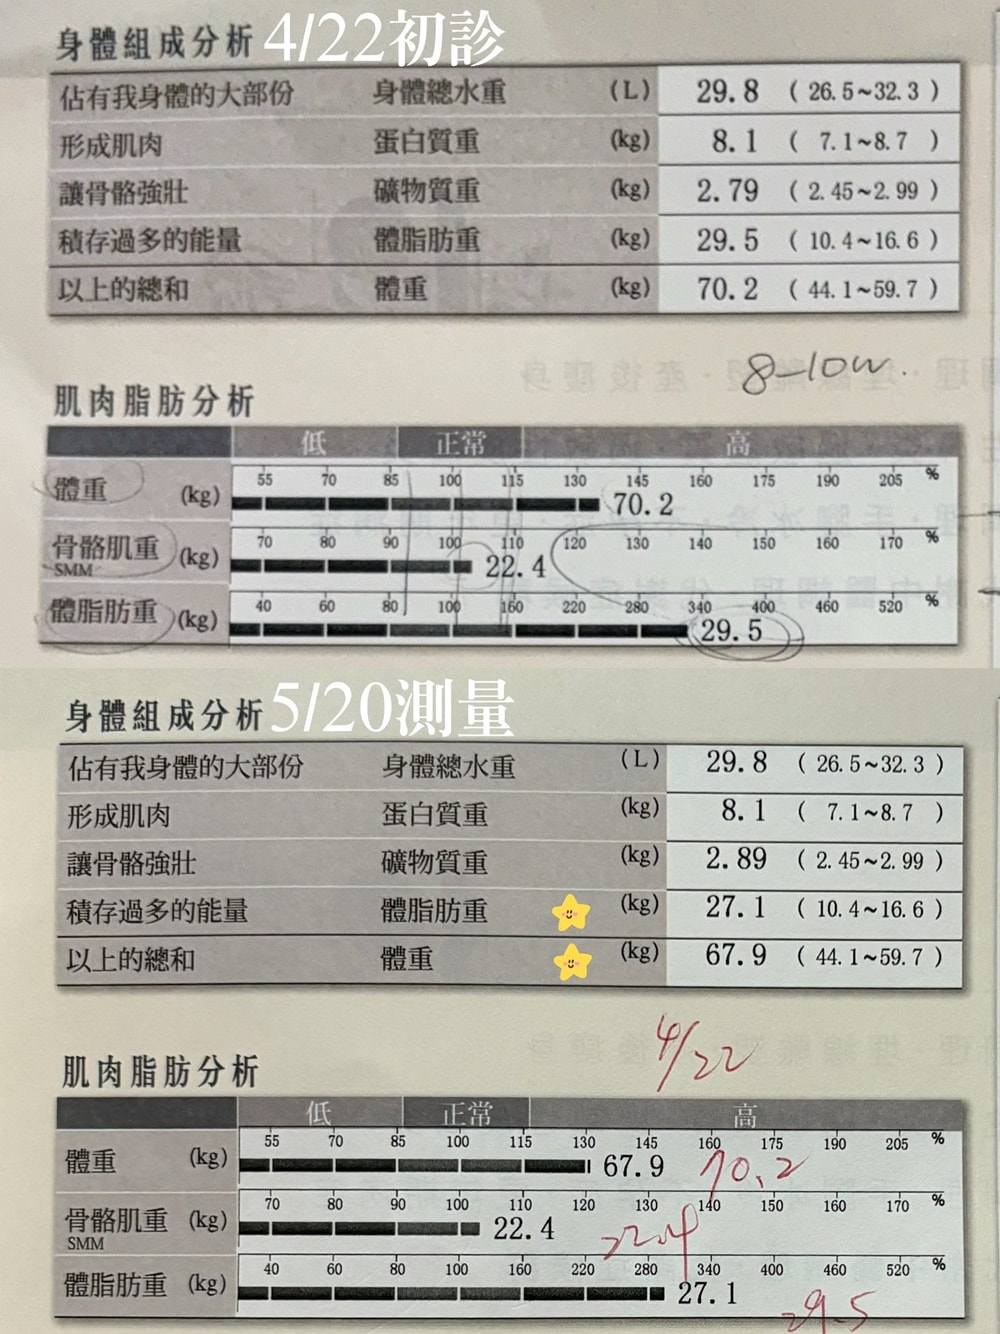 身體組成分析 4/22初診
佔有我身體的大部份 身體總水重 (L) 29.8 ( 26.5~32.3 )
形成肌肉 蛋白質重 (kg) 8.1 ( 7.1~8.7 )
讓骨骼強壯 礦物質重 (kg) 2.79 ( 2.45~2.99 )
積存過多的能量 體脂肪重 (kg) 29.5 ( 10.4~16.6 )
以上的總和 體重 (kg) 70.2 ( 44.1~59.7 )
8-10w.
肌肉脂肪分析
低 正常 高
55 70 85 100 115 130 145 160 175 190 205 %
體重 (kg) 70.2
70 80 90 100 110 120 130 140 150 160 170 %
骨骼肌重 (kg) 22.4
SMM
40 60 80 100 160 220 280 340 400 460 520 %
體脂肪重 (kg) 29.5
身體組成分析 5/20測量
佔有我身體的大部份 身體總水重 (L) 29.8 ( 26.5~32.3 )
形成肌肉 蛋白質重 (kg) 8.1 ( 7.1~8.7 )
讓骨骼強壯 礦物質重 (kg) 2.89 ( 2.45~2.99 )
積存過多的能量 體脂肪重 (kg) 27.1 ( 10.4~16.6 )
以上的總和 體重 (kg) 67.9 ( 44.1~59.7 )
4/22
肌肉脂肪分析
低 正常 高
55 70 85 100 115 130 145 160 175 190 205 %
體重 (kg) 67.9 70.2
70 80 90 100 110 120 130 140 150 160 170 %
骨骼肌重 (kg) 22.4 22.4
SMM
40 60 80 100 160 220 280 340 400 460 520 %
體脂肪重 (kg) 27.1 29.5